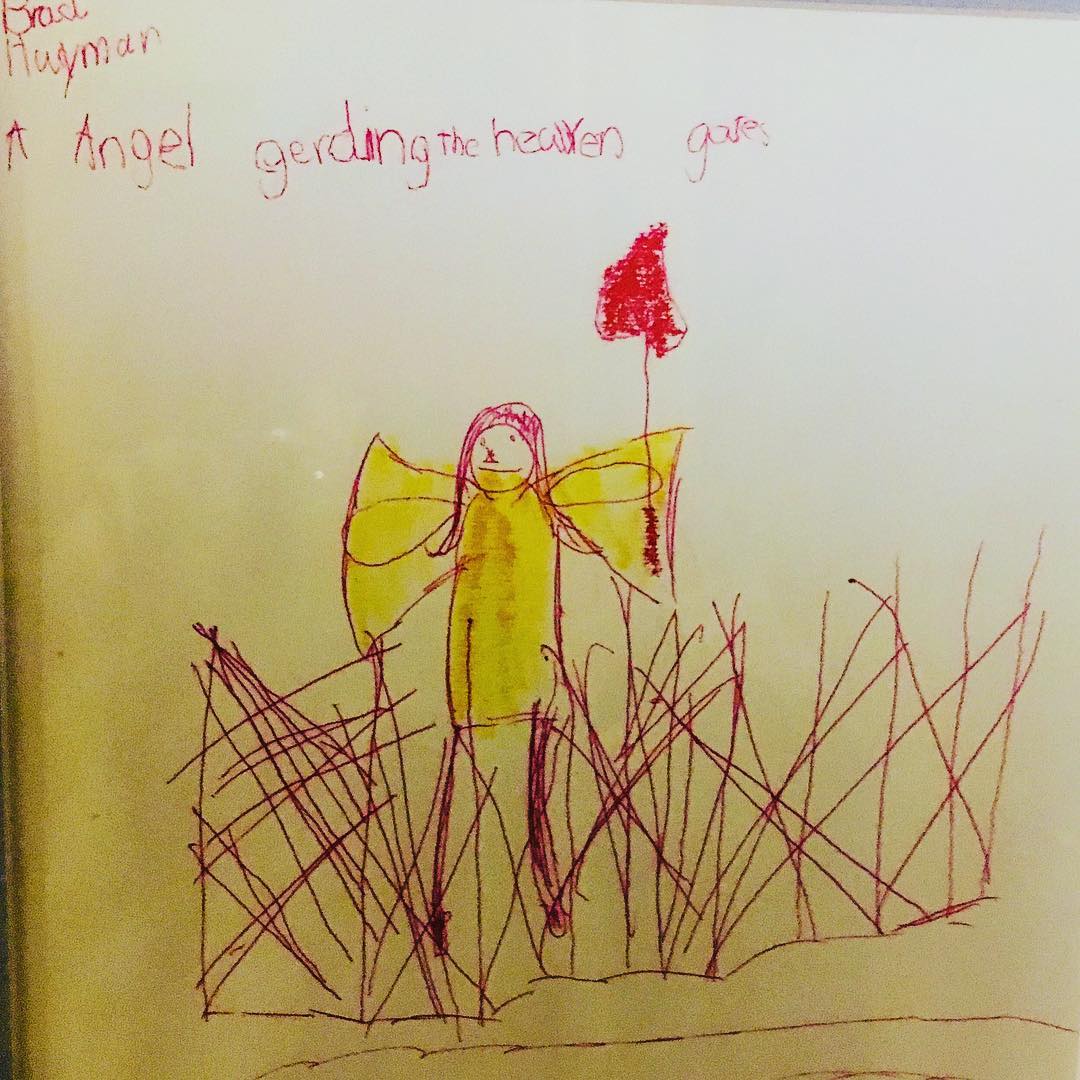 Brad
Hayman
A Angel gerding the heaven gates